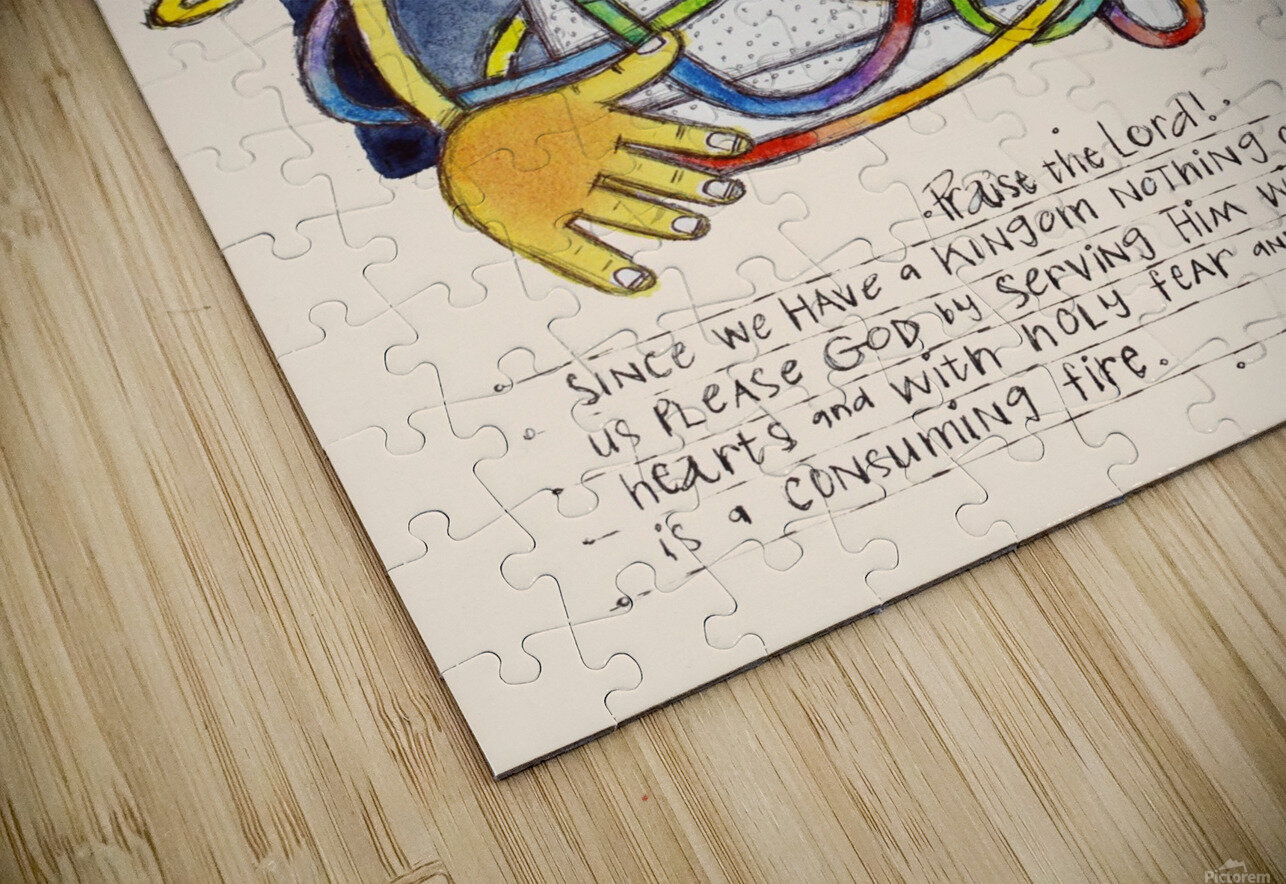 Praise the Lord!
SINCE we HAVE a KINGOM NOTHING
us PLEASE GOD by SERVING HIM
hearts and with hOLY fEAR and
is a CONSUMING fire.
Pictorem